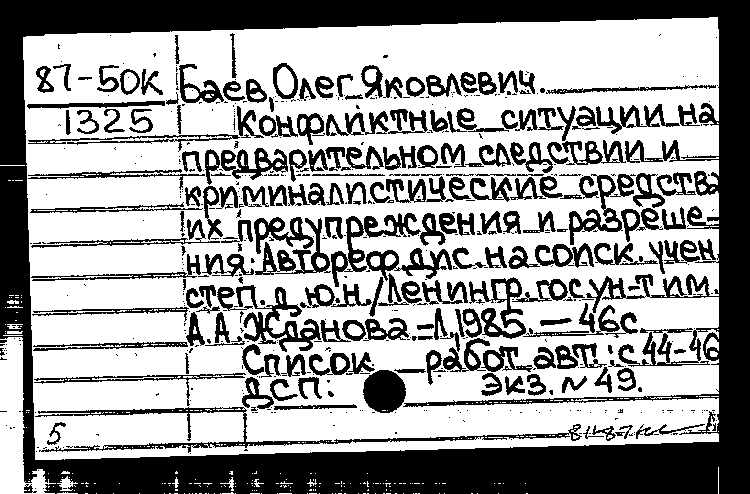 87-50К Баев, Олег Яковлевич.
1325 Конфликтные ситуации на
предварительном следствии и
криминалистические средства
их предупреждения и разреше-
ния: Автореф. дис. на соиск. учен.
степ. д.ю.н. / Ленингр. гос. ун-т им.
А.А. Жданова. - Л., 1985. — 46 с.
Список работ авт.: с. 44-46
ДСП. экз. № 49.
5